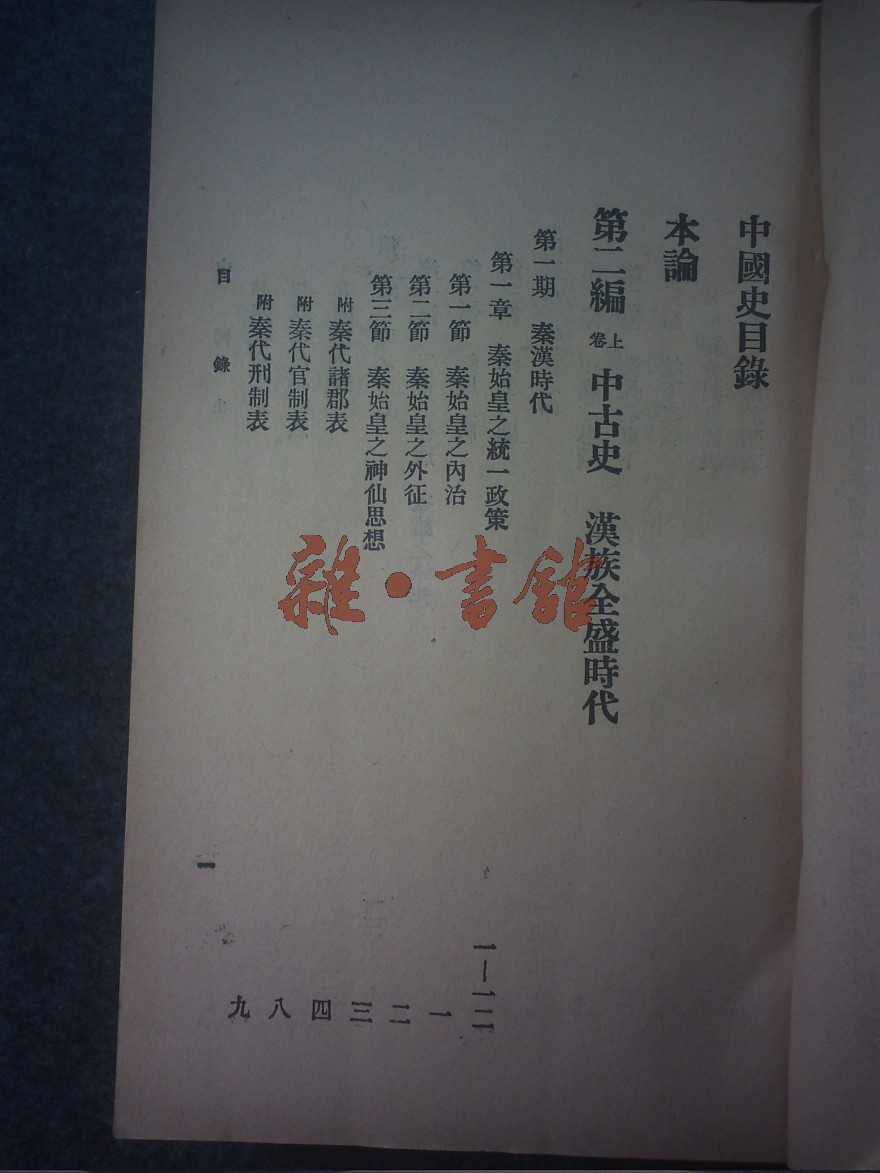 中國史目錄
本論
第二編 卷上 中古史 漢族全盛時代
第一期 秦漢時代
第一章 秦始皇之統一政策 一—一二
第一節 秦始皇之內治 一
第二節 秦始皇之外征 二
第三節 秦始皇之神仙思想 三
附 秦代諸郡表 四
附 秦代官制表 八
附 秦代刑制表 九
目錄 一
雜·書館